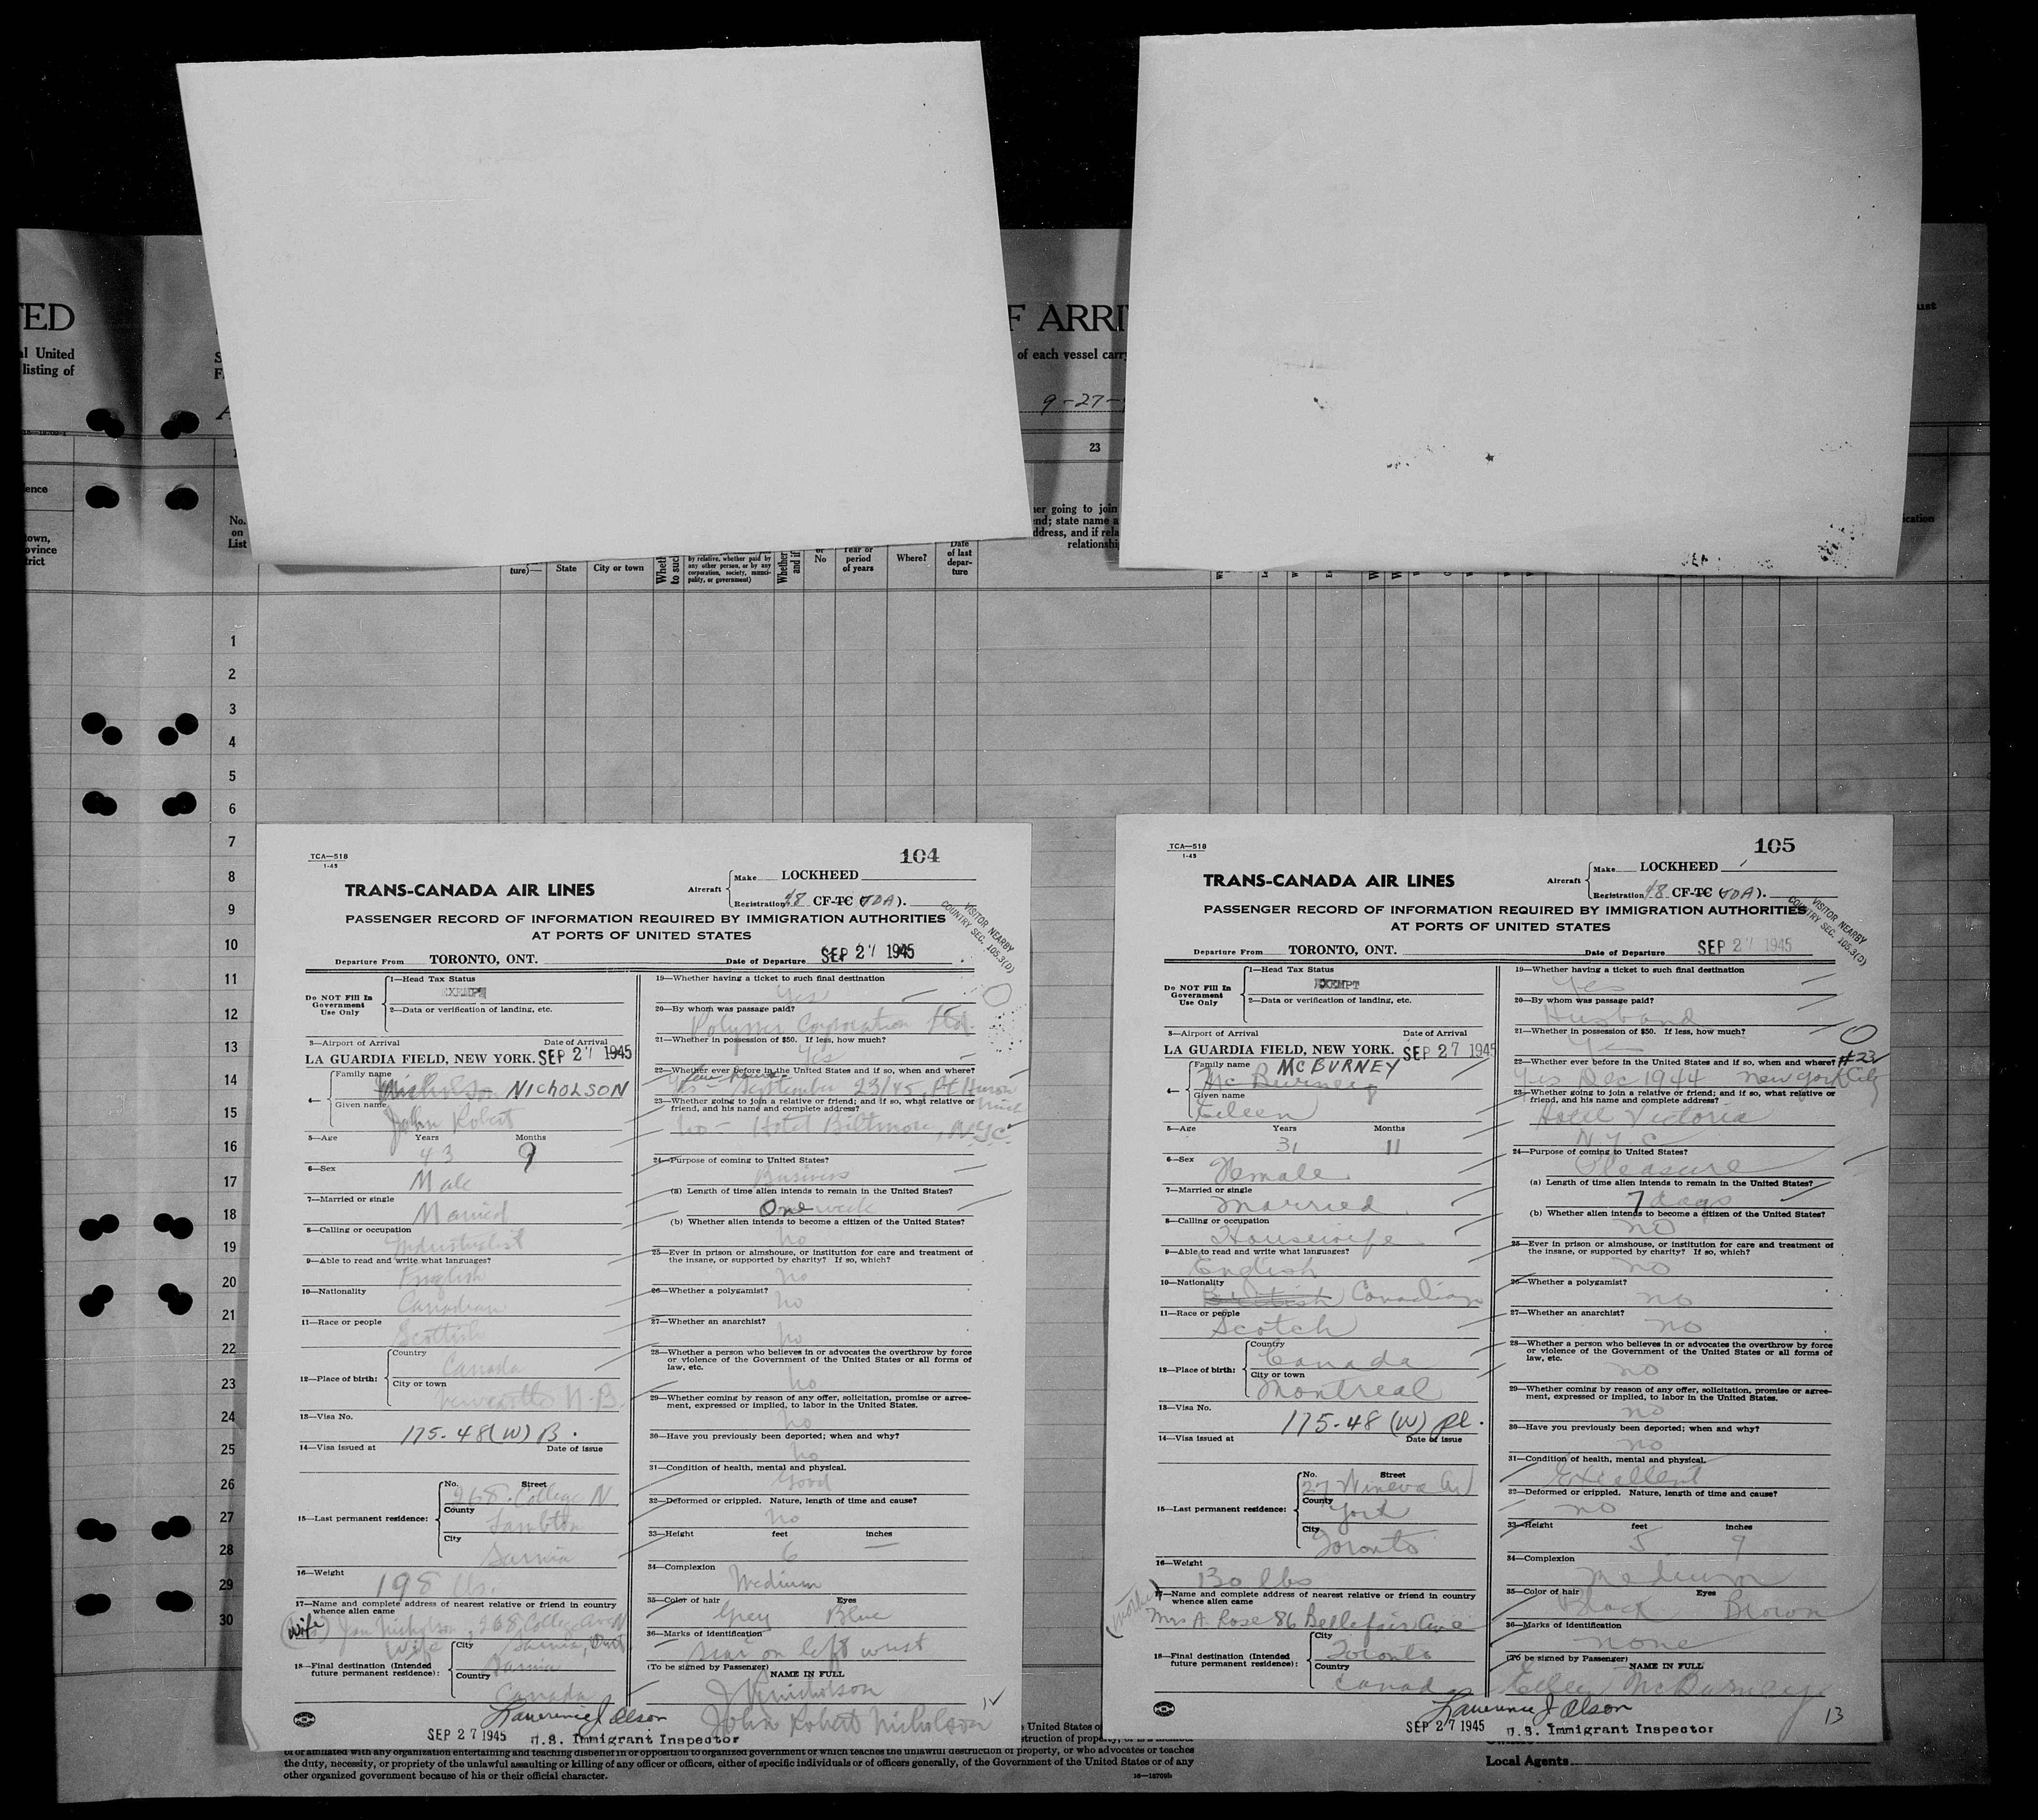 TED
al United
listing of
F ARRI
of each vessel carry
9-27-
23
ence
No.
on
List
er going to join
nd; state name a
ddress, and if rela
relationshi
ication
own,
ovince
trict
ture)—
State
City or town
by relative, whether paid by
any other person, or by any
corporation, society, munici-
pality, or government)
No
Year or
period
of years
Where?
Date
of last
depar-
ture
1
2
3
4
5
6
7
8
9
10
11
12
13
14
15
16
17
18
19
20
21
22
23
24
25
26
27
28
29
30
TCA—518
1-45
104
TRANS-CANADA AIR LINES
Aircraft
Make LOCKHEED
Registration 48 CF-TC (TDA).
PASSENGER RECORD OF INFORMATION REQUIRED BY IMMIGRATION AUTHORITIES
AT PORTS OF UNITED STATES
VISITOR NEARBY
COUNTRY SEC. 105.3(D)
Departure From TORONTO, ONT. Date of Departure SEP 27 1945
Do NOT Fill In
Government
Use Only
1—Head Tax Status
EXEMPT
2—Data or verification of landing, etc.
3—Airport of Arrival Date of Arrival
LA GUARDIA FIELD, NEW YORK. SEP 27 1945
4— Family name
Nicholson NICHOLSON
Given name
John Robert
5—Age Years Months
43 9
6—Sex
Male
7—Married or single
Married
8—Calling or occupation
Industrialist
9—Able to read and write what languages?
English
10—Nationality
Canadian
11—Race or people
Scottish
12—Place of birth:
Country
Canada
City or town
Newcastle N.B.
13—Visa No.
175.48(W) B.
14—Visa issued at Date of issue
15—Last permanent residence:
No. Street
268 College N
County
Lambton
City
Sarnia
16—Weight
198 lbs.
17—Name and complete address of nearest relative or friend in country
whence alien came
(Wife) Jean Nicholson, 268 College Ave N
Wife Sarnia, Ont
18—Final destination (Intended
future permanent residence):
City
Sarnia
Country
Canada
19—Whether having a ticket to such final destination
Yes
20—By whom was passage paid?
Polymer Corporation Ltd.
21—Whether in possession of $50. If less, how much?
Yes
22—Whether ever before in the United States and if so, when and where?
Yes few hours September 23/45 Pt Huron
Mich
23—Whether going to join a relative or friend; and if so, what relative or
friend, and his name and complete address?
No - Hotel Biltmore, NYC.
24—Purpose of coming to United States?
Business
(a) Length of time alien intends to remain in the United States?
One week
(b) Whether alien intends to become a citizen of the United States?
no
25—Ever in prison or almshouse, or institution for care and treatment of
the insane, or supported by charity? If so, which?
no
26—Whether a polygamist?
no
27—Whether an anarchist?
no
28—Whether a person who believes in or advocates the overthrow by force
or violence of the Government of the United States or all forms of
law, etc.
no
29—Whether coming by reason of any offer, solicitation, promise or agree-
ment, expressed or implied, to labor in the United States.
no
30—Have you previously been deported; when and why?
no
31—Condition of health, mental and physical.
Good
32—Deformed or crippled. Nature, length of time and cause?
no
33—Height feet inches
6 —
34—Complexion
Medium
35—Color of hair Eyes
Grey Blue
36—Marks of identification
scar on left wrist
(To be signed by Passenger)
NAME IN FULL
J R Nicholson
John Robert Nicholson
Lawrence J Olson
SEP 27 1945 U.S. Immigrant Inspector
TCA—518
1-45
105
TRANS-CANADA AIR LINES
Aircraft
Make LOCKHEED
Registration 48 CF-TC (TDA).
PASSENGER RECORD OF INFORMATION REQUIRED BY IMMIGRATION AUTHORITIES
AT PORTS OF UNITED STATES
VISITOR NEARBY
COUNTRY SEC. 105.3(D)
Departure From TORONTO, ONT. Date of Departure SEP 27 1945
Do NOT Fill In
Government
Use Only
1—Head Tax Status
EXEMPT
2—Data or verification of landing, etc.
3—Airport of Arrival Date of Arrival
LA GUARDIA FIELD, NEW YORK. SEP 27 1945
4— Family name MCBURNEY
Mc Burney
Given name
Eileen
5—Age Years Months
31 11
6—Sex
Female
7—Married or single
Married
8—Calling or occupation
Housewife
9—Able to read and write what languages?
English
10—Nationality
British Canadian
11—Race or people
Scotch
12—Place of birth:
Country
Canada
City or town
Montreal
13—Visa No.
175.48 (W) pl.
14—Visa issued at Date of issue
15—Last permanent residence:
No. Street
27 Wineva Av
County
York
City
Toronto
16—Weight
130 lbs
17—Name and complete address of nearest relative or friend in country
whence alien came
(mother) Mrs A. Rose 86 Bellefair Ave
18—Final destination (Intended
future permanent residence):
City
Toronto
Country
Canada
19—Whether having a ticket to such final destination
Yes
20—By whom was passage paid?
Husband
21—Whether in possession of $50. If less, how much?
Yes
22—Whether ever before in the United States and if so, when and where? #23
Yes Dec 1944 New York City
23—Whether going to join a relative or friend; and if so, what relative or
friend, and his name and complete address?
Hotel Victoria
N.Y.C
24—Purpose of coming to United States?
Pleasure
(a) Length of time alien intends to remain in the United States?
7 days
(b) Whether alien intends to become a citizen of the United States?
no
25—Ever in prison or almshouse, or institution for care and treatment of
the insane, or supported by charity? If so, which?
no
26—Whether a polygamist?
no
27—Whether an anarchist?
no
28—Whether a person who believes in or advocates the overthrow by force
or violence of the Government of the United States or all forms of
law, etc.
no
29—Whether coming by reason of any offer, solicitation, promise or agree-
ment, expressed or implied, to labor in the United States.
no
30—Have you previously been deported; when and why?
no
31—Condition of health, mental and physical.
Excellent
32—Deformed or crippled. Nature, length of time and cause?
no
33—Height feet inches
5 9
34—Complexion
Medium
35—Color of hair Eyes
Black Brown
36—Marks of identification
none
(To be signed by Passenger)
NAME IN FULL
Eileen McBurney
Lawrence J Olson
13
SEP 27 1945 U.S. Immigrant Inspector
United States o
struction of property,
or affiliated with any organization entertaining and teaching disbelief in or opposition to organized government or which teaches the unlawful destruction of property, or who advocates or teaches
the duty, necessity, or propriety of the unlawful assaulting or killing of any officer or officers, either of specific individuals or of officers generally, of the Government of the United States or of any
other organized government because of his or their official character.
16—18709b
Local Agents